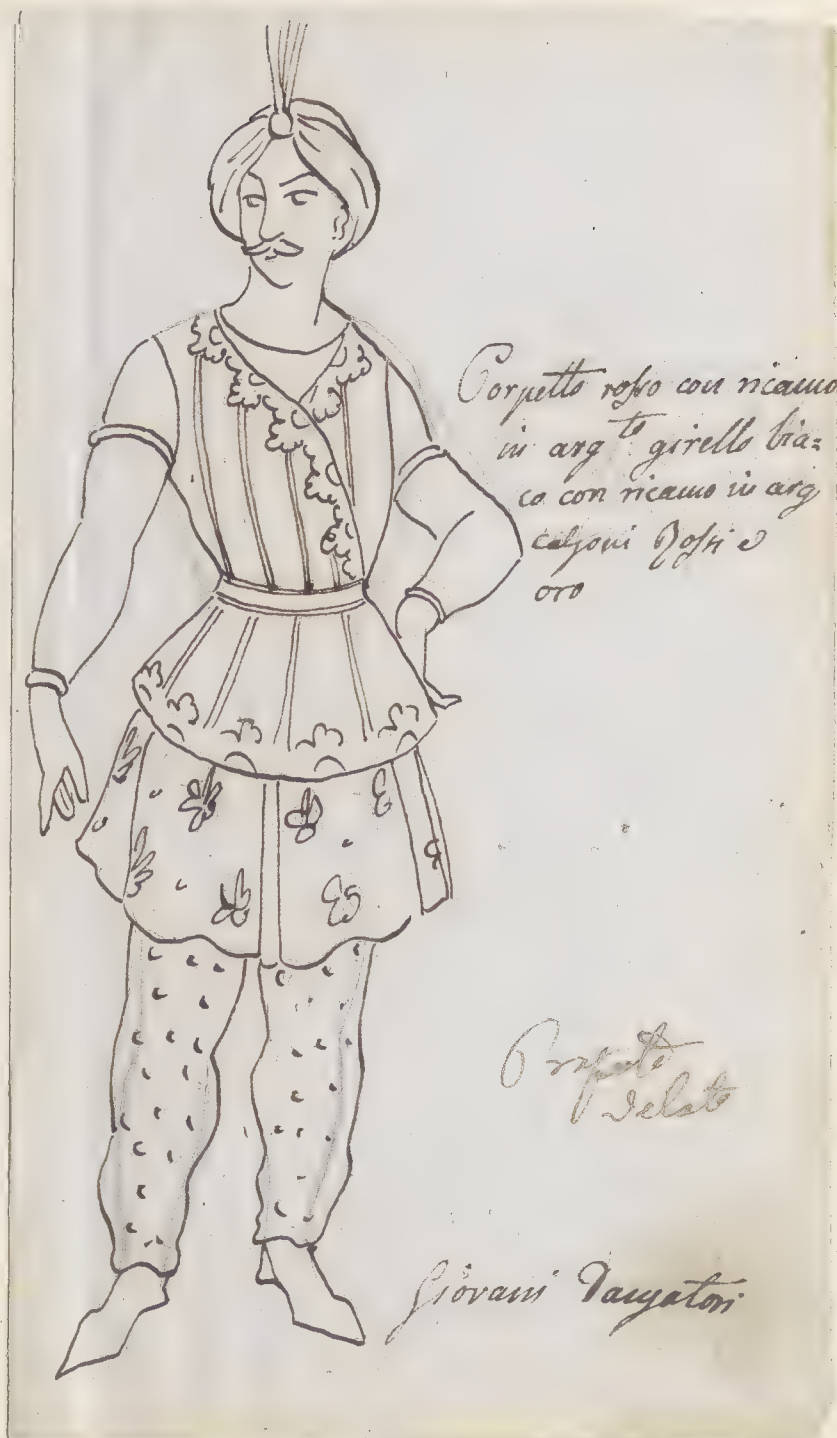 Corpetto rosso con ricamo
in arg.to girello bia=
co con ricamo in arg
calzoni Rossi e
oro
delato
Giovani Danzatori